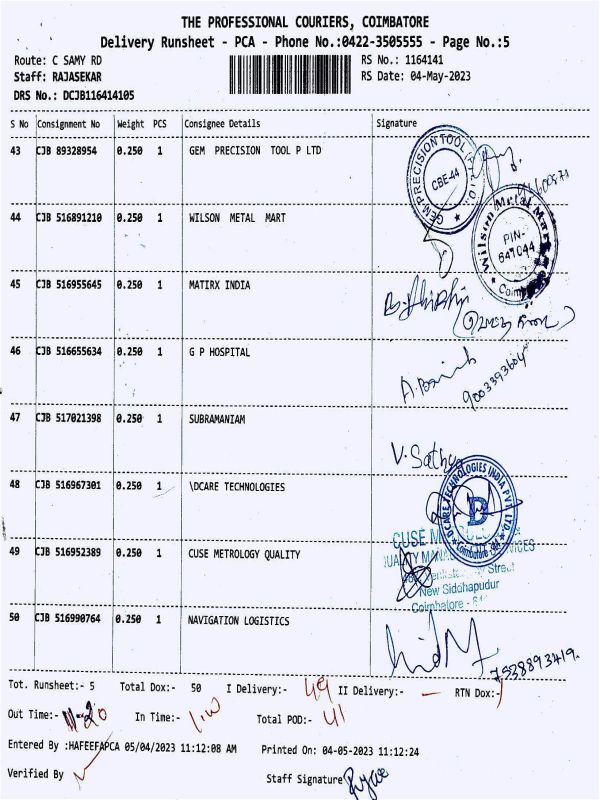 THE PROFESSIONAL COURIERS, COIMBATORE
Delivery Runsheet - PCA - Phone No.:0422-3505555 - Page No.:5
Route: C SAMY RD RS No.: 1164141
Staff: RAJASEKAR RS Date: 04-May-2023
DRS No.: DCJB116414105
S No Consignment No Weight PCS Consignee Details Signature
43 CJB 89328954 0.250 1 GEM PRECISION TOOL P LTD
GEM PRECISION TOOL
CBE-44
44 CJB 516891210 0.250 1 WILSON METAL MART
Wilson Metal Mart
PIN-
641044
45 CJB 516955645 0.250 1 MATIRX INDIA
46 CJB 516655634 0.250 1 G P HOSPITAL
9003393604
47 CJB 517021398 0.250 1 SUBRAMANIAM
V. Sathya
48 CJB 516967301 0.250 1 \DCARE TECHNOLOGIES
DCARE TECHNOLOGIES INDIA PVT. LTD.
D
Coimbatore
CUSE
49 CJB 516952389 0.250 1 CUSE METROLOGY QUALITY
Street
New Siddhapudur
Coimbatore
50 CJB 516990764 0.250 1 NAVIGATION LOGISTICS
7538893419.
Tot. Runsheet:- 5 Total Dox:- 50 I Delivery:- 49 II Delivery:- — RTN Dox:-
Out Time:- 11-20 In Time:- Total POD:- 41
Entered By :HAFEEFAPCA 05/04/2023 11:12:08 AM Printed On: 04-05-2023 11:12:24
Verified By Staff Signature